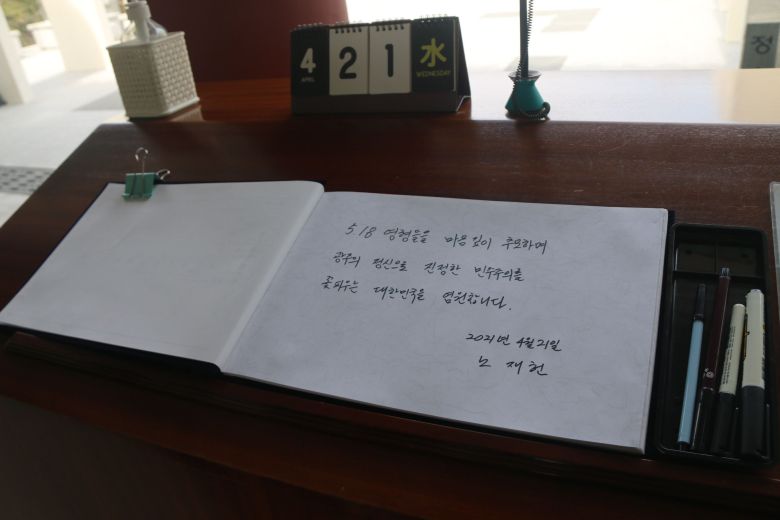 4 2 1 水
APRIL WEDNESDAY
정
5.18 영령들을 마음 깊이 추모하며
광주의 정신으로 진정한 민주주의를
꽃피우는 대한민국을 염원합니다.
2021년 4월 21일
노 재 헌